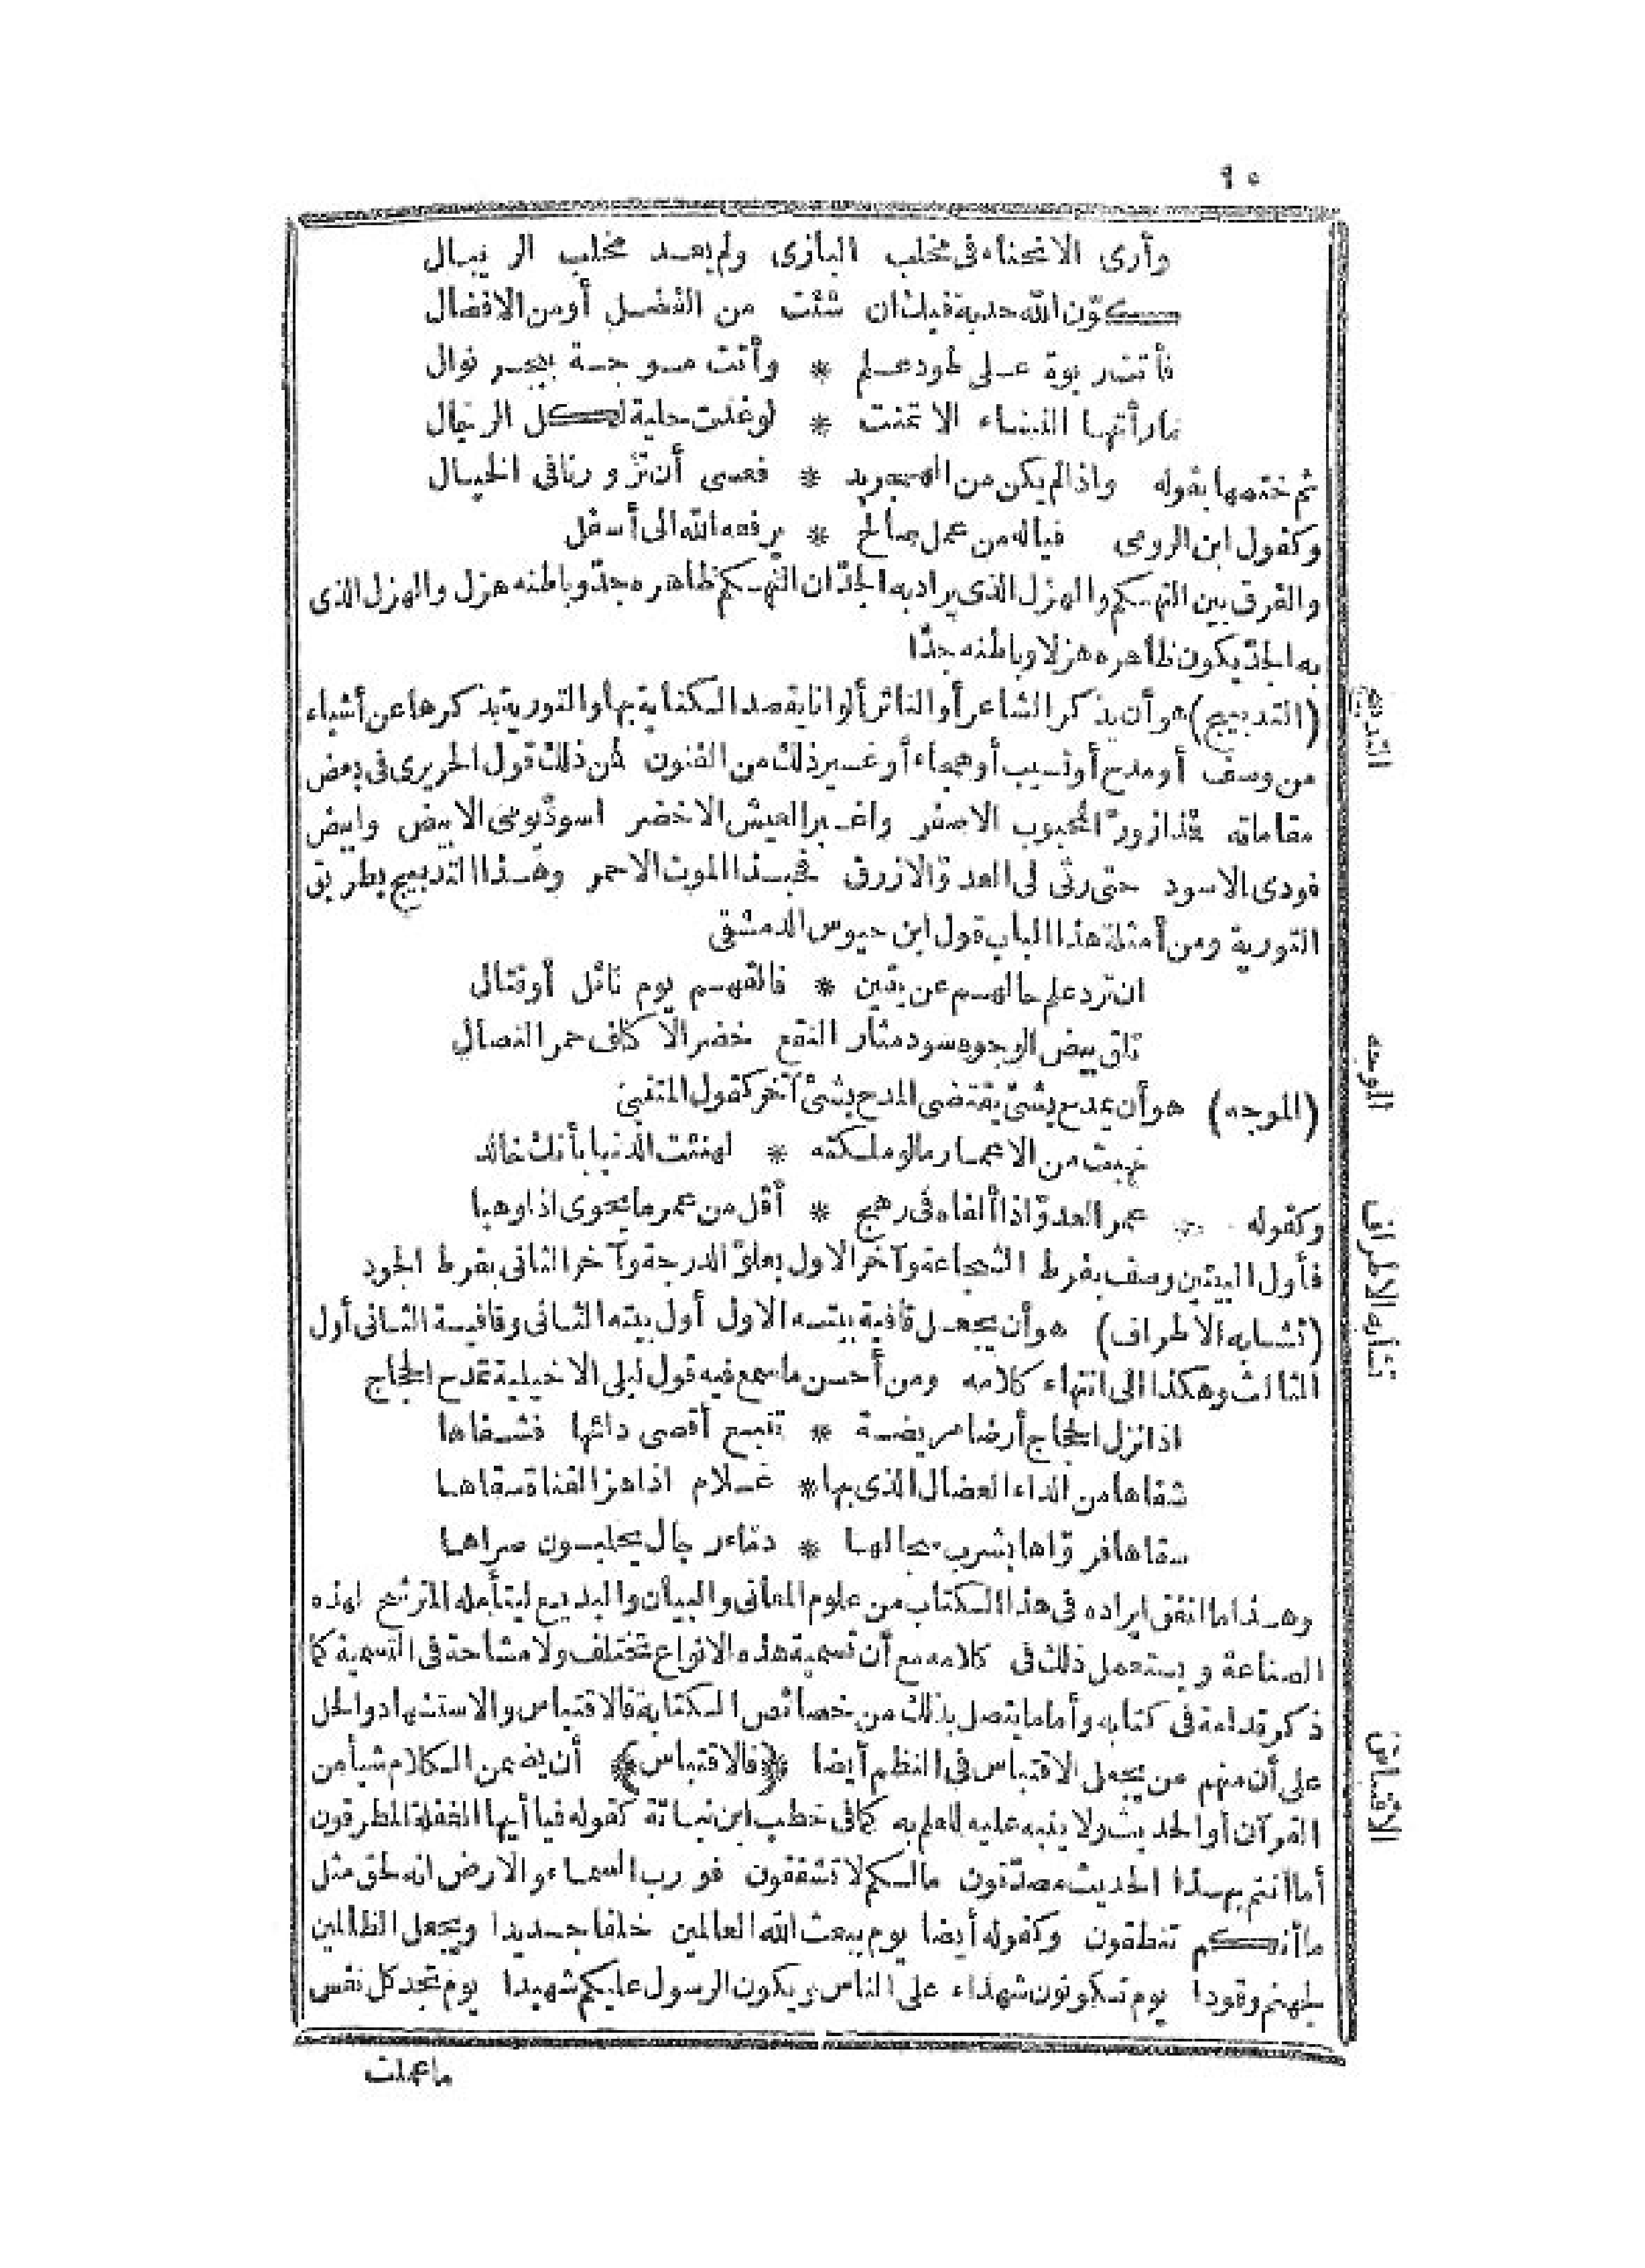 ٩٠
وأرى الانحناء فى مخلب البازى ولم يعد مخلب الريبال
كوّن الله حدبة فيك ان شئت من الفضل أو من الافضال
فأتت ربوة على طود حلم * وأنت موجة ببحر نوال
ما رأتها النساء الا تمنت * لو غدت حلية لكل الرجال
ثم ختمها بقوله واذا لم يكن من الهجر بد * فعسى أن تزورنا فى الخيال
وكقول ابن الرومى فياله من عمل صالح * يرفعه الله الى أسفل
والفرق بين التهكم والهزل الذى يراد به الجدّ ان التهكم ظاهره جدّ وباطنه هزل والهزل الذى
به الجدّ يكون ظاهره هزلا وباطنه جدّا
(التدبيج) هو أن يذكر الشاعر أو الناثر ألوانا يقصد الكناية بها والتورية بذكرها عن أشياء
من وصف أو مدح أو نسيب أو هجاء أو غير ذلك من الفنون فمن ذلك قول الحريرى فى بعض
مقاماته فمذ ازورّ المحبوب الاصفر واغبر العيش الاخضر اسودّ يومى الابيض وابيض
فودى الاسود حتى رثى لى العدوّ الازرق فحبذا الموت الاحمر وهذا التدبيج بطريق
التورية ومن أمثلة هذا الباب قول ابن حيوس الدمشقى
ان ترد علم حالهم عن يقين * فالقهم يوم نائل أو قتال
تلق بيض الوجوه سود مثار النقع خضر الا كاف حمر النصال
(الموجه) هو أن يمدح بشئ يقتضى المدح بشئ آخر كقول المتنبى
نهبت من الاعمار مالو ملكته * لهنئت الدنيا بأنك خالد
وكقوله عمر العدوّ اذا ألفاه فى رهج * أقل من عمر ما يحوى اذا وهبا
فأول البيتين وصف بفرط الشجاعة وآخر الاول بعلوّ الدرجة وآخر الثانى بفرط الجود
(تشابه الاطراف) هو أن يجعل قافية بيته الاول أول بيته الثانى وقافية الثانى أول
الثالث وهكذا الى انتهاء كلامه ومن أحسن ما سمع فيه قول ليلى الاخيلية تمدح الحجاج
اذا نزل الحجاج أرضا مريضة * تتبع أقصى دائها فشفاها
شفاها من الداء العضال الذى بها * غلام اذا هز القناة سقاها
سقاها فروّاها بشرب سجالها * دماء رجال يحلبون صراها
وهذا ما اتفق ايراده فى هذا الكتاب من علوم المعانى والبيان والبديع ليتأمله المترشح لهذه
الصناعة ويستعمل ذلك فى كلامه مع أن تسمية هذه الانواع تختلف ولا مشاحة فى التسمية كما
ذكر قدامة فى كتابه وأما ما يتصل بذلك من خصائص الكتابة فالاقتباس والاستشهاد والحل
على أن منهم من يجعل الاقتباس فى النظم أيضا ﴿فالاقتباس﴾ أن يضمن الكلام شيأ من
القرآن أو الحديث ولا ينبه عليه للعلم به كما فى خطب ابن نباتة كقوله فيا أيها الغفلة المطرقون
أما أنتم بهذا الحديث مصدّقون مالكم لا تشفقون فورب السماء والارض انه لحق مثل
ما أنكم تنطقون وكقوله أيضا يوم يبعث الله العالمين خلقا جديدا ويجعل الظالمين
لجهنم وقودا يوم تكونون شهداء على الناس ويكون الرسول عليكم شهيدا يوم تجد كل نفس
ما عملت
التدبيج
الموجه
تشابه الاطراف
الاقتباس